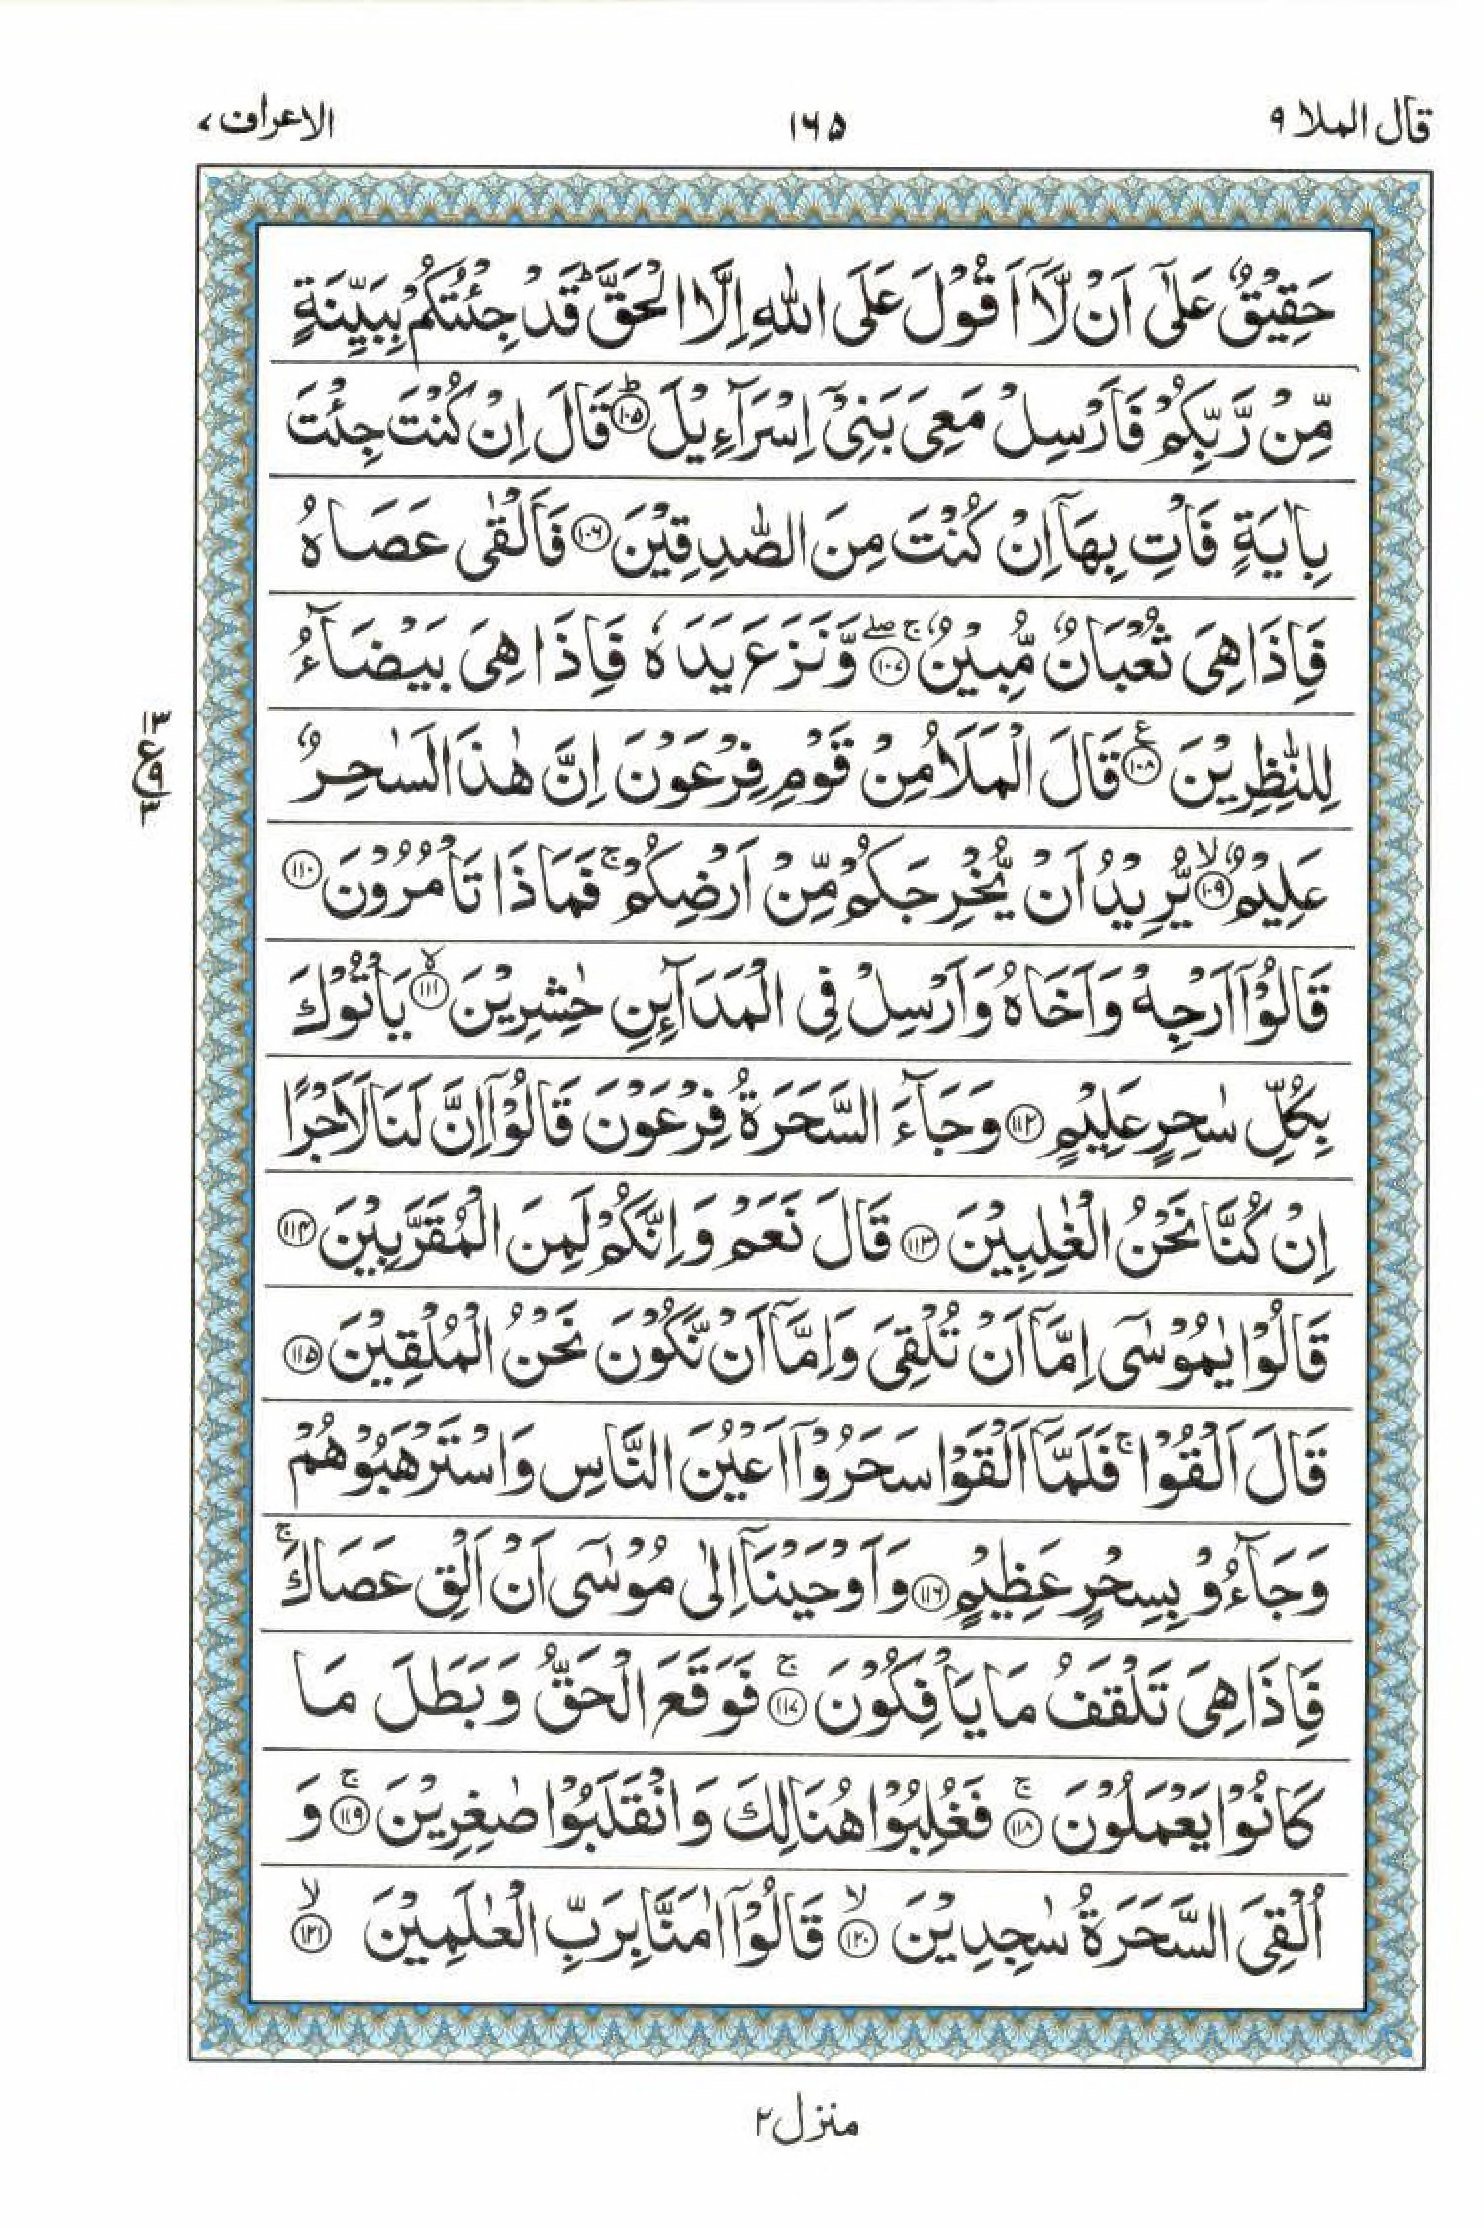 قال الملا ٩
١٦٥
الاعراف ٧
حَقِيْقٌ عَلٰٓى اَنْ لَّاۤ اَقُوْلَ عَلَى اللّٰهِ اِلَّا الْحَقَّ ؕ قَدْ جِئْتُكُمْ بِبَيِّنَةٍ
مِّنْ رَّبِّكُمْ فَاَرْسِلْ مَعِىَ بَنِىْۤ اِسْرَآءِيْلَ ؕ‏﴿۱۰۵﴾ قَالَ اِنْ كُنْتَ جِئْتَ
بِاٰيَةٍ فَاْتِ بِهَاۤ اِنْ كُنْتَ مِنَ الصّٰدِقِيْنَ ﴿۱۰۶﴾ فَاَلْقٰى عَصَاهُ
فَاِذَا هِىَ ثُعْبَانٌ مُّبِيْنٌ ۚۖ ﴿۱۰۷﴾ وَّنَزَعَ يَدَهٗ فَاِذَا هِىَ بَيْضَآءُ
لِلنّٰظِرِيْنَ ﴿۱۰۸﴾ ع قَالَ الْمَلَاُ مِنْ قَوْمِ فِرْعَوْنَ اِنَّ هٰذَا لَسٰحِرٌ
عَلِيْمٌ ۙ ﴿۱۰۹﴾ يُّرِيْدُ اَنْ يُّخْرِجَكُمْ مِّنْ اَرْضِكُمْ ۚ فَمَاذَا تَاْمُرُوْنَ ﴿۱۱۰﴾
قَالُوْۤا اَرْجِهْ وَاَخَاهُ وَاَرْسِلْ فِى الْمَدَآئِنِ حٰشِرِيْنَ ۙ ﴿۱۱۱﴾ يَاْتُوْكَ
بِكُلِّ سٰحِرٍ عَلِيْمٍ ﴿۱۱۲﴾ وَجَآءَ السَّحَرَةُ فِرْعَوْنَ قَالُوْۤا اِنَّ لَنَا لَاَجْرًا
اِنْ كُنَّا نَحْنُ الْغٰلِبِيْنَ ﴿۱۱۳﴾ قَالَ نَعَمْ وَاِنَّكُمْ لَمِنَ الْمُقَرَّبِيْنَ ﴿۱۱۴﴾
قَالُوْا يٰمُوْسٰٓى اِمَّاۤ اَنْ تُلْقِىَ وَاِمَّاۤ اَنْ نَّكُوْنَ نَحْنُ الْمُلْقِيْنَ ﴿۱۱۵﴾
قَالَ اَلْقُوْا ۚ فَلَمَّاۤ اَلْقَوْا سَحَرُوْۤا اَعْيُنَ النَّاسِ وَاسْتَرْهَبُوْهُمْ
وَجَآءُوْ بِسِحْرٍ عَظِيْمٍ ﴿۱۱۶﴾ وَاَوْحَيْنَاۤ اِلٰى مُوْسٰٓى اَنْ اَلْقِ عَصَاكَ ۚ
فَاِذَا هِىَ تَلْقَفُ مَا يَاْفِكُوْنَ ۚ ﴿۱۱۷﴾ فَوَقَعَ الْحَقُّ وَبَطَلَ مَا
كَانُوْا يَعْمَلُوْنَ ۚ ﴿۱۱۸﴾ فَغُلِبُوْا هُنَالِكَ وَانْقَلَبُوْا صٰغِرِيْنَ ۚ ﴿۱۱۹﴾ وَ
اُلْقِىَ السَّحَرَةُ سٰجِدِيْنَ ۙ ﴿۱۲۰﴾ قَالُوْۤا اٰمَنَّا بِرَبِّ الْعٰلَمِيْنَ ۙ ﴿۱۲۱﴾
١٣
ع ٩
٣
منزل ٢